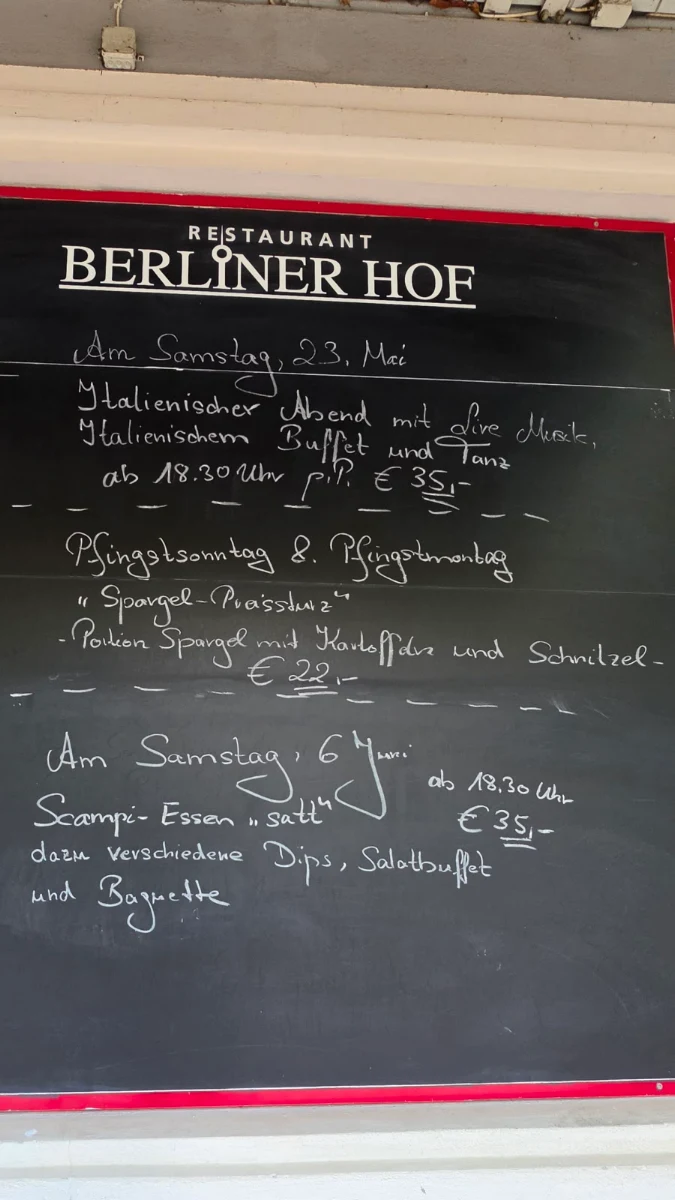 RESTAURANT
BERLINER HOF
Am Samstag, 23. Mai
Italienischer Abend mit Live Musik,
Italienischem Buffet und Tanz
ab 18.30 Uhr p.P. € 35,-
Pfingstsonntag & Pfingstmontag
„Spargel-Preissturz“
- Portion Spargel mit Kartoffeln und Schnitzel -
€ 22,-
Am Samstag, 6 Juni
ab 18.30 Uhr
Scampi-Essen „satt“ € 35,-
dazu verschiedene Dips, Salatbuffet
und Baguette